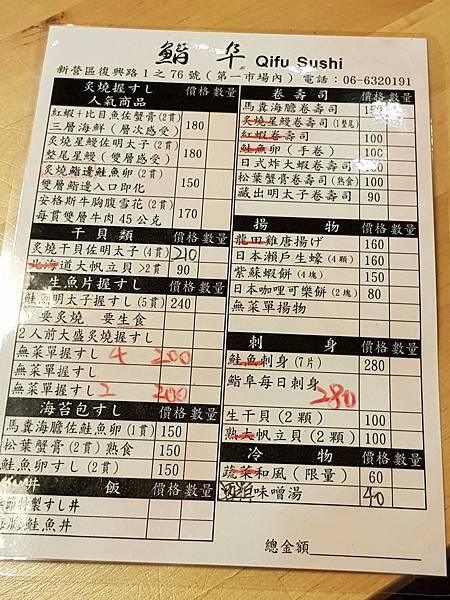 鮨阜 Qifu Sushi
新營區復興路1之76號(第一市場內)電話:06-6320191
炙燒握すし 價格 數量
人氣商品
紅蝦+比目魚佐蟹膏(2貫)
三層海鮮(層次感受) 180
炙燒星鰻佐明太子(2貫)
整尾星鰻(雙層感受) 180
炙燒鮨邊鮭魚卵(2貫)
雙層鮨邊入口即化 150
安格斯牛胸腹雪花(2貫)
每貫雙層牛肉45公克 170
干貝類 價格 數量
炙燒干貝佐明太子(4貫) 210
北海道大帆立貝>2貫 90
生魚片握すし 價格 數量
鮭魚明太子握すし(5貫) 240
要炙燒 要生食
2人前大盛炙燒握すし
無菜單握すし 4 200
無菜單握すし
無菜單握すし 2 200
海苔包すし 價格 數量
馬糞海膽佐鮭魚卵(1貫) 150
松葉蟹膏(2貫)熟食 150
鮭魚卵すし(2貫) 150
丼飯 價格 數量
特製すし丼
鮭魚丼
卷壽司 價格 數量
馬糞海膽卷壽司 150
炙燒星鰻卷壽司(1整尾)
紅蝦卷壽司 100
鮭魚卵(手卷) 100
日式炸大蝦卷壽司 100
松葉蟹膏卷壽司(熟食) 100
藏出明太子卷壽司 90
揚物 價格 數量
龍田雞唐揚げ 160
日本瀨戶生蠔(4顆) 160
紫蘇蝦餅(4塊) 150
日本咖哩可樂餅(2塊) 80
無菜單揚物
刺身 價格 數量
鮭魚刺身(7片) 280
鮨阜每日刺身 280
生干貝(2顆) 100
熟大帆立貝(2顆) 100
冷物 價格 數量
蔬菜和風(限量) 60
味噌湯 40
總金額